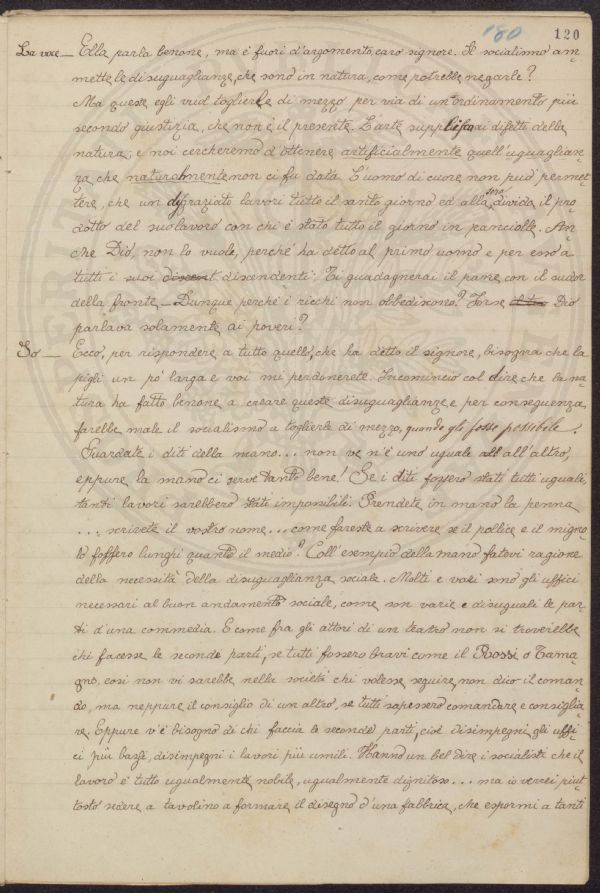 180 120
La voce — Ella parla benone, ma è fuori d'argomento, caro signore. Il socialismo am-
mette le disuguaglianze, che sono in natura, come potrebbe negarle?
Ma queste egli vuol toglierle di mezzo per via di un ordinamento più
secondo giustizia, che non è il presente. L'arte supplisca ai difetti della
natura, e noi cercheremo d'ottenere artificialmente quell'uguaglian-
za che naturalmente non ci fu data. L'uomo di cuore non può permet-
tere, che un disgraziato lavori tutto il santo giorno ed alla sera divida il pro-
dotto del suo lavoro con chi è stato tutto il giorno in panciolle. An-
che Dio, non lo vuole, perché ha detto al primo uomo e per esso a
tutti i suoi discent discendenti: Ti guadagnerai il pane con il sudor
della fronte — Dunque perché i ricchi non obbediscono? Forse Dio
parlava solamente ai poveri?
Io — Ecco, per rispondere a tutto quello, che ha detto il signore, bisogna che la
pigli un po' larga e voi mi perdonerete. Incomincio col dire che la na-
tura ha fatto benone a creare queste disuguaglianze e per conseguenza
farebbe male il socialismo a toglierle di mezzo, quando gli fosse possibile.
Guardate i diti della mano... non ve n'è uno uguale all all'altro,
eppure la mano ci serve tanto bene! Se i diti fossero stati tutti uguali,
tanti lavori sarebbero stati impossibili. Prendete in mano la penna
... scrivete il vostro nome... come fareste a scrivere se il pollice e il migno-
lo fossero lunghi quanto il medio? Coll'esempio della mano fatevi ragione
della necessità della disuguaglianza sociale. Molti e varî sono gli uffici
necessari al buon andamento sociale, come son varie e disuguali le par-
ti d'una commedia. E come fra gli attori di un teatro non si troverebbe
chi facesse le seconde parti, se tutti fossero bravi come il Rossi o Tama-
gno, così non vi sarebbe nella società chi volesse seguire, non dico il coman-
do, ma neppure il consiglio di un altro, se tutti sapessero comandare e consiglia-
re. Eppure v'è bisogno di chi faccia le seconde parti, cioè disimpegni gli uffi-
ci più bassi, disimpegni i lavori più umili. Hanno un bel dire i socialisti che il
lavoro è tutto ugualmente nobile, ugualmente dignitoso... ma io vorrei piut-
tosto sedere a tavolino a formare il disegno d'una fabbrica, che espormi a tanti